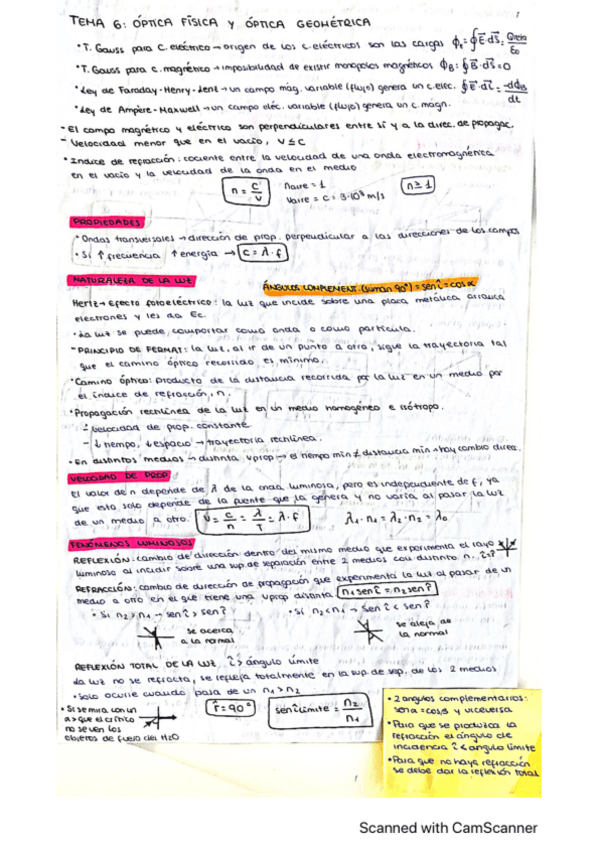 TEMA 6: ÓPTICA FÍSICA Y ÓPTICA GEOMÉTRICA
• T. Gauss para C. eléctrico → origen de los c. eléctricos son las cargas ϕE = ∮E·dS = Qneta/ε0
• T. Gauss para c. magnético → imposibilidad de existir monopolos magnéticos ϕB: ∮B·dS = 0
• Ley de Faraday-Henry-Lenz → un campo mag. variable (flujo) genera un c. elec. ∮E·dl = -dϕB/dt
• Ley de Ampere-Maxwell → un campo eléc. variable (flujo) genera un c. magn.
- El campo magnético y eléctrico son perpendiculares entre sí y a la direc. de propagac.
- Velocidad menor que en el vacío, v ≤ c
• Indice de refracción: cociente entre la velocidad de una onda electromagnética
en el vacío y la velocidad de la onda en el medio
n = c/v naire = 1 n ≥ 1
Vaire = c = 3·10⁸ m/s
PROPIEDADES
• Ondas transversales → dirección de prop. perpendicular a las direcciones de los campos
• Si ↑ frecuencia ↑ energía → c = λ·f
NATURALEZA DE LA LUZ ÁNGULOS COMPLEMENT. (suman 90°) = sen î = cos α
Hertz → efecto fotoeléctrico: la luz que incide sobre una placa metálica arranca
electrones y les da Ec.
• La luz se puede comportar como onda o como partícula.
- PRINCIPIO DE FERMAT: la luz, al ir de un punto a otro, sigue la trayectoria tal
que el camino óptico recorrido es mínimo.
• Camino óptico: producto de la distancia recorrida por la luz en un medio por
el índice de refracción, n.
• Propagación rectilínea de la luz en un medio homogéneo e isótropo.
- velocidad de prop. constante.
- ↓ tiempo, ↓ espacio → trayectoria rectilínea.
• En distintos medios → distinta vprop → el tiempo mín ≠ distancia mín → hay cambio direc.
VELOCIDAD DE PROP
El valor de n depende de λ de la onda luminosa, pero es independiente de f, ya
que esta solo depende de la fuente que la genera y no varía al pasar la luz
de un medio a otro. v = c/n = λ/T = λ·f λ1·n1 = λ2·n2 = λ0
FENÓMENOS LUMINOSOS
REFLEXIÓN: cambio de dirección dentro del mismo medio que experimenta el rayo
luminoso al incidir sobre una sup. de separación entre 2 medios con distinto n. î = r̂
REFRACCIÓN: cambio de dirección de propagación que experimenta la luz al pasar de un
medio a otro en el que tiene una vprop distinta n1 sen î = n2 sen r̂
• Si n2 > n1 → sen î > sen r̂ • Si n2 < n1 → sen î < sen r̂
se acerca a la normal
se aleja de la normal
REFLEXIÓN TOTAL DE LA LUZ, î > ángulo límite
La luz no se refracta, se refleja totalmente en la sup. de sep. de los 2 medios
• Solo ocurre cuando pasa de un n1 > n2
• Si se mira con un
α > que el crítico
no se ven los
objetos de fuera del H2O
r̂ = 90° sen î límite = n2/n1
• 2 angulos complementarios:
sen α = cos β y viceversa
• Para que se produzca la
refracción el ángulo de
incidencia î < angulo límite
• Para que no haya refracción
se debe dar la reflexión total
Scanned with CamScanner